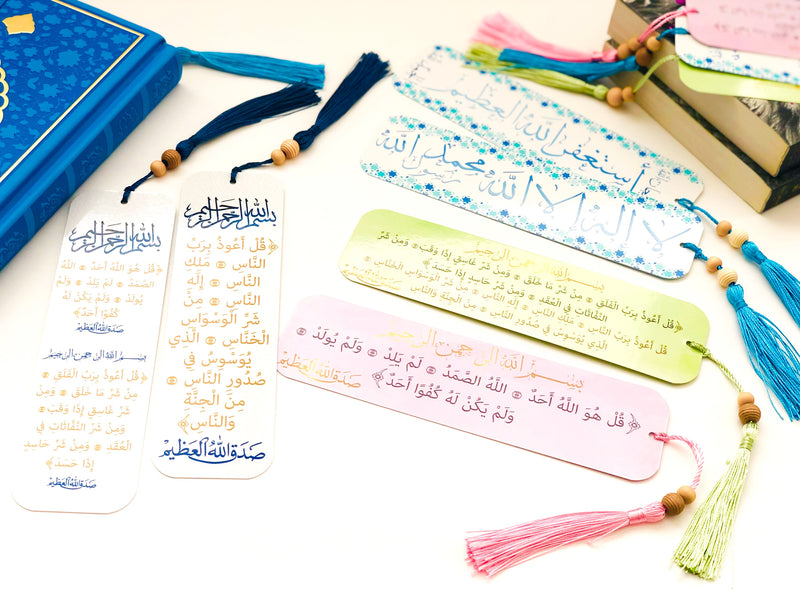 بسم الله الرحمن الرحيم
﴿قُلْ هُوَ اللَّهُ أَحَدٌ ۞ اللَّهُ
الصَّمَدُ ۞ لَمْ يَلِدْ ۞ وَلَمْ
يُولَدْ ۞ وَلَمْ يَكُنْ لَهُ
كُفُوًا أَحَدٌ﴾
صدق الله العظيم
بسم الله الرحمن الرحيم
﴿قُلْ أَعُوذُ بِرَبِّ الْفَلَقِ ۞
مِنْ شَرِّ مَا خَلَقَ ۞ وَمِنْ
شَرِّ غَاسِقٍ إِذَا وَقَبَ ۞
وَمِنْ شَرِّ النَّفَّاثَاتِ فِي
الْعُقَدِ ۞ وَمِنْ شَرِّ حَاسِدٍ
إِذَا حَسَدَ﴾
صدق الله العظيم
بسم الله الرحمن الرحيم
﴿قُلْ أَعُوذُ بِرَبِّ
النَّاسِ ۞ مَلِكِ
النَّاسِ ۞ إِلَٰهِ
النَّاسِ ۞ مِنْ
شَرِّ الْوَسْوَاسِ
الْخَنَّاسِ ۞ الَّذِي
يُوَسْوِسُ فِي
صُدُورِ النَّاسِ ۞
مِنَ الْجِنَّةِ
وَالنَّاسِ﴾
صدق الله العظيم
أستغفر الله العظيم
لا إله إلا الله محمد رسول الله
بسم الله الرحمن الرحيم
﴿قُلْ أَعُوذُ بِرَبِّ الْفَلَقِ ۞ مِنْ شَرِّ مَا خَلَقَ ۞ وَمِنْ شَرِّ غَاسِقٍ إِذَا وَقَبَ ۞ وَمِنْ شَرِّ
النَّفَّاثَاتِ فِي الْعُقَدِ ۞ وَمِنْ شَرِّ حَاسِدٍ إِذَا حَسَدَ﴾
قُلْ أَعُوذُ بِرَبِّ النَّاسِ ۞ مَلِكِ النَّاسِ ۞ إِلَٰهِ النَّاسِ ۞ مِنْ شَرِّ الْوَسْوَاسِ الْخَنَّاسِ ۞
الَّذِي يُوَسْوِسُ فِي صُدُورِ النَّاسِ ۞ مِنَ الْجِنَّةِ وَالنَّاسِ
بسم الله الرحمن الرحيم
﴿قُلْ هُوَ اللَّهُ أَحَدٌ ۞ اللَّهُ الصَّمَدُ ۞ لَمْ يَلِدْ ۞ وَلَمْ يُولَدْ ۞
وَلَمْ يَكُنْ لَهُ كُفُوًا أَحَدٌ﴾
صدق الله العظيم